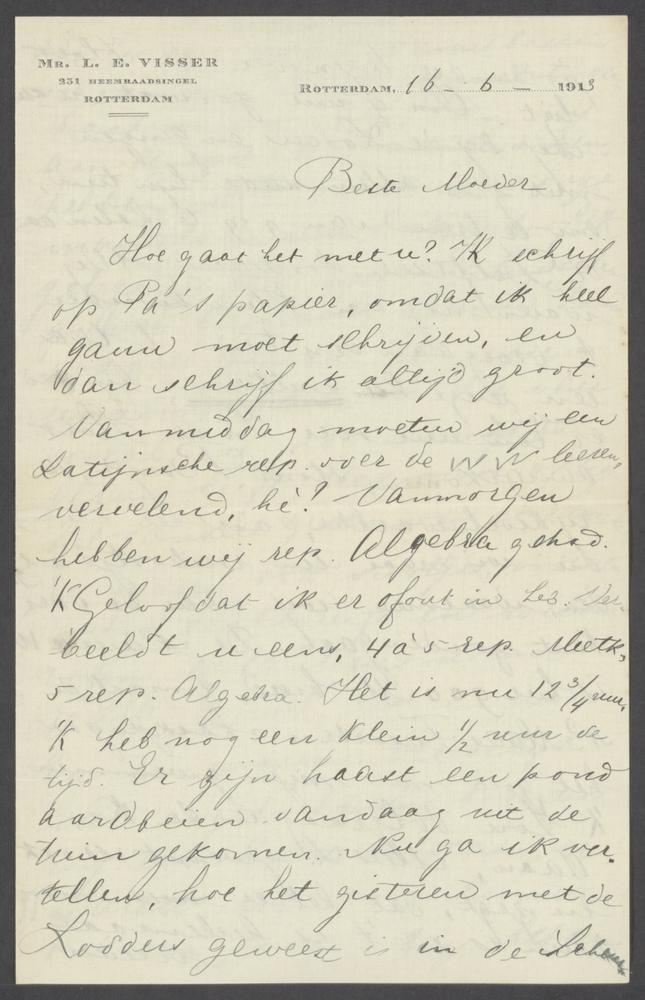 MR. L. E. VISSER
251 HEEMRAADSINGEL
ROTTERDAM
ROTTERDAM, 16 - 6 - 1913
Beste Moeder
Hoe gaat het met u? 'K schrijf
op Pa's papier, omdat ik heel
gauw moet schrijven, en
dan schrijf ik altijd groot.
Vanmiddag moeten wij een
Latijnsche rep. over de WW leeren,
vervelend, hè? Vanmorgen
hebben wij rep. Algebra gehad.
'K Geloof dat ik er 0 fout in heb. Ver-
beeldt u eens, 4 à 5 rep. Meetk,
5 rep. Algebra. Het is nu 12 3/4 uur,
'k heb nog een klein 1/2 uur de
tijd. Er zijn haast een pond
aardbeien vandaag uit de
tuin gekomen. Nu ga ik ver-
tellen, hoe het gisteren met de
Lodders geweest is in de